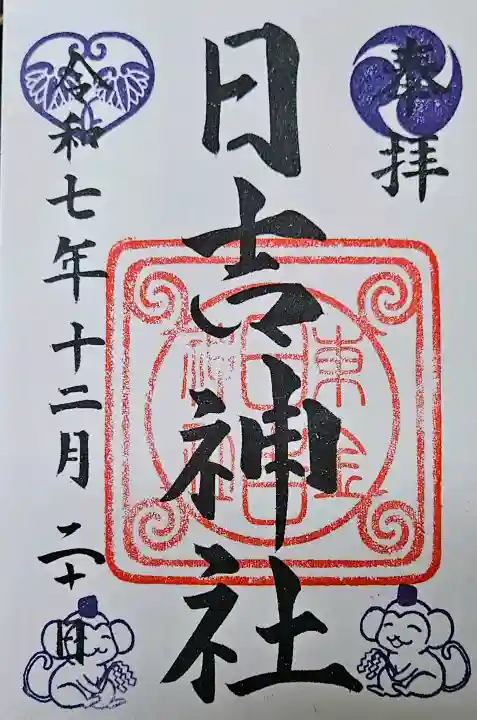 奉拝
日吉神社
東金
日吉
神社
令和七年十二月二十日